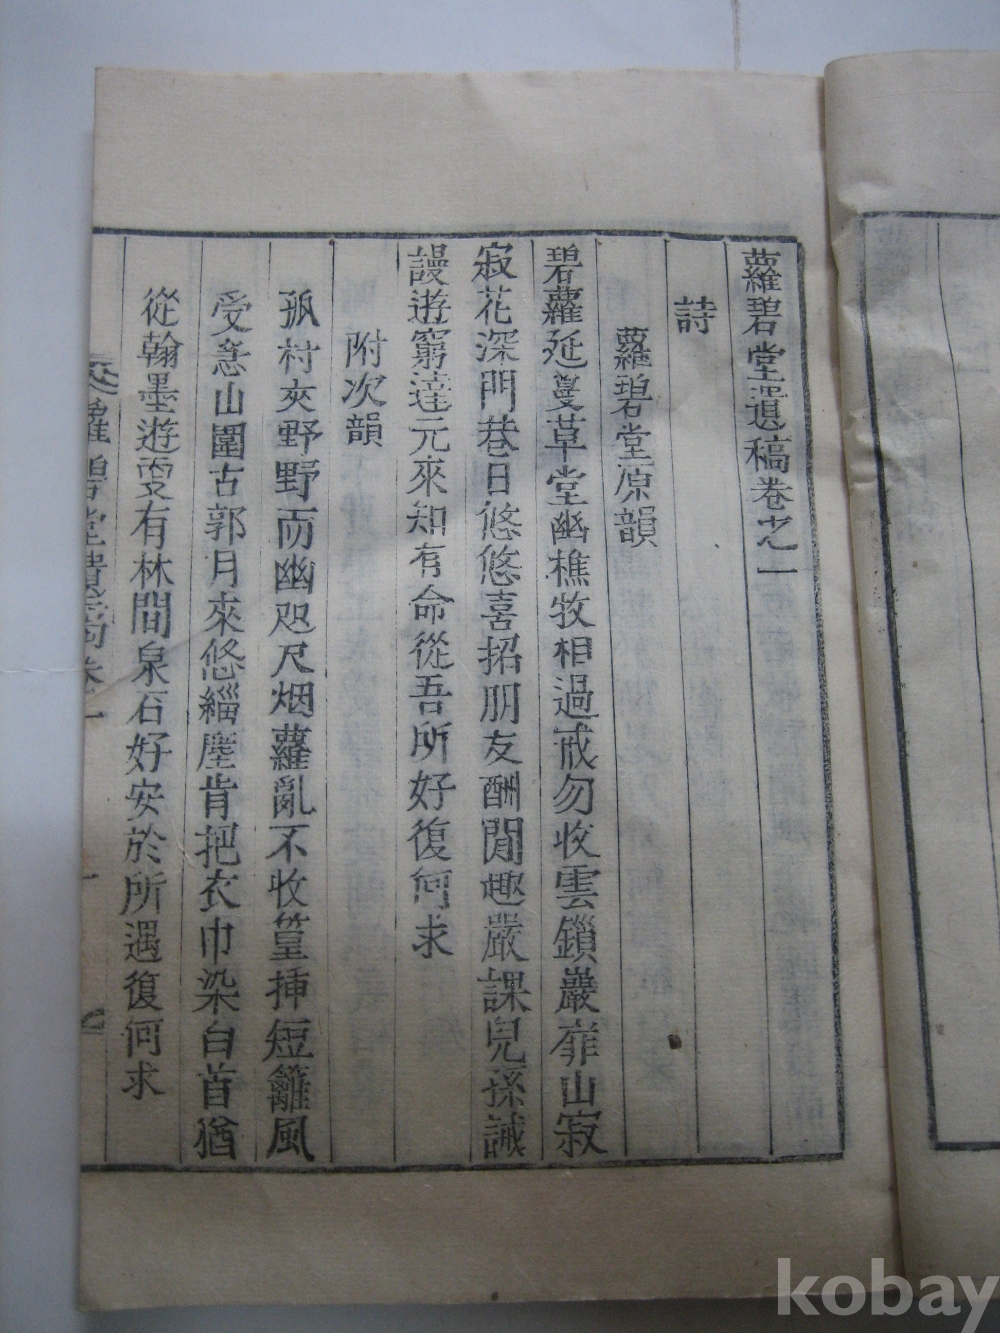 蘿碧堂遺稿卷之一
詩
蘿碧堂原韻
碧蘿延蔓草堂幽樵牧相過戒勿收雲鎖巖扉山寂
寂花深門巷日悠悠喜招朋友酬閒趣嚴課兒孫誡
謾遊窮達元來知有命從吾所好復何求
附次韻
孤村夾野野而幽咫尺烟蘿亂不收篁揷短籬風
受急山圍古郭月來悠緇塵肯把衣巾染白首猶
從翰墨遊更有林間泉石好安於所遇復何求
蘿碧堂遺稿卷一
kobay